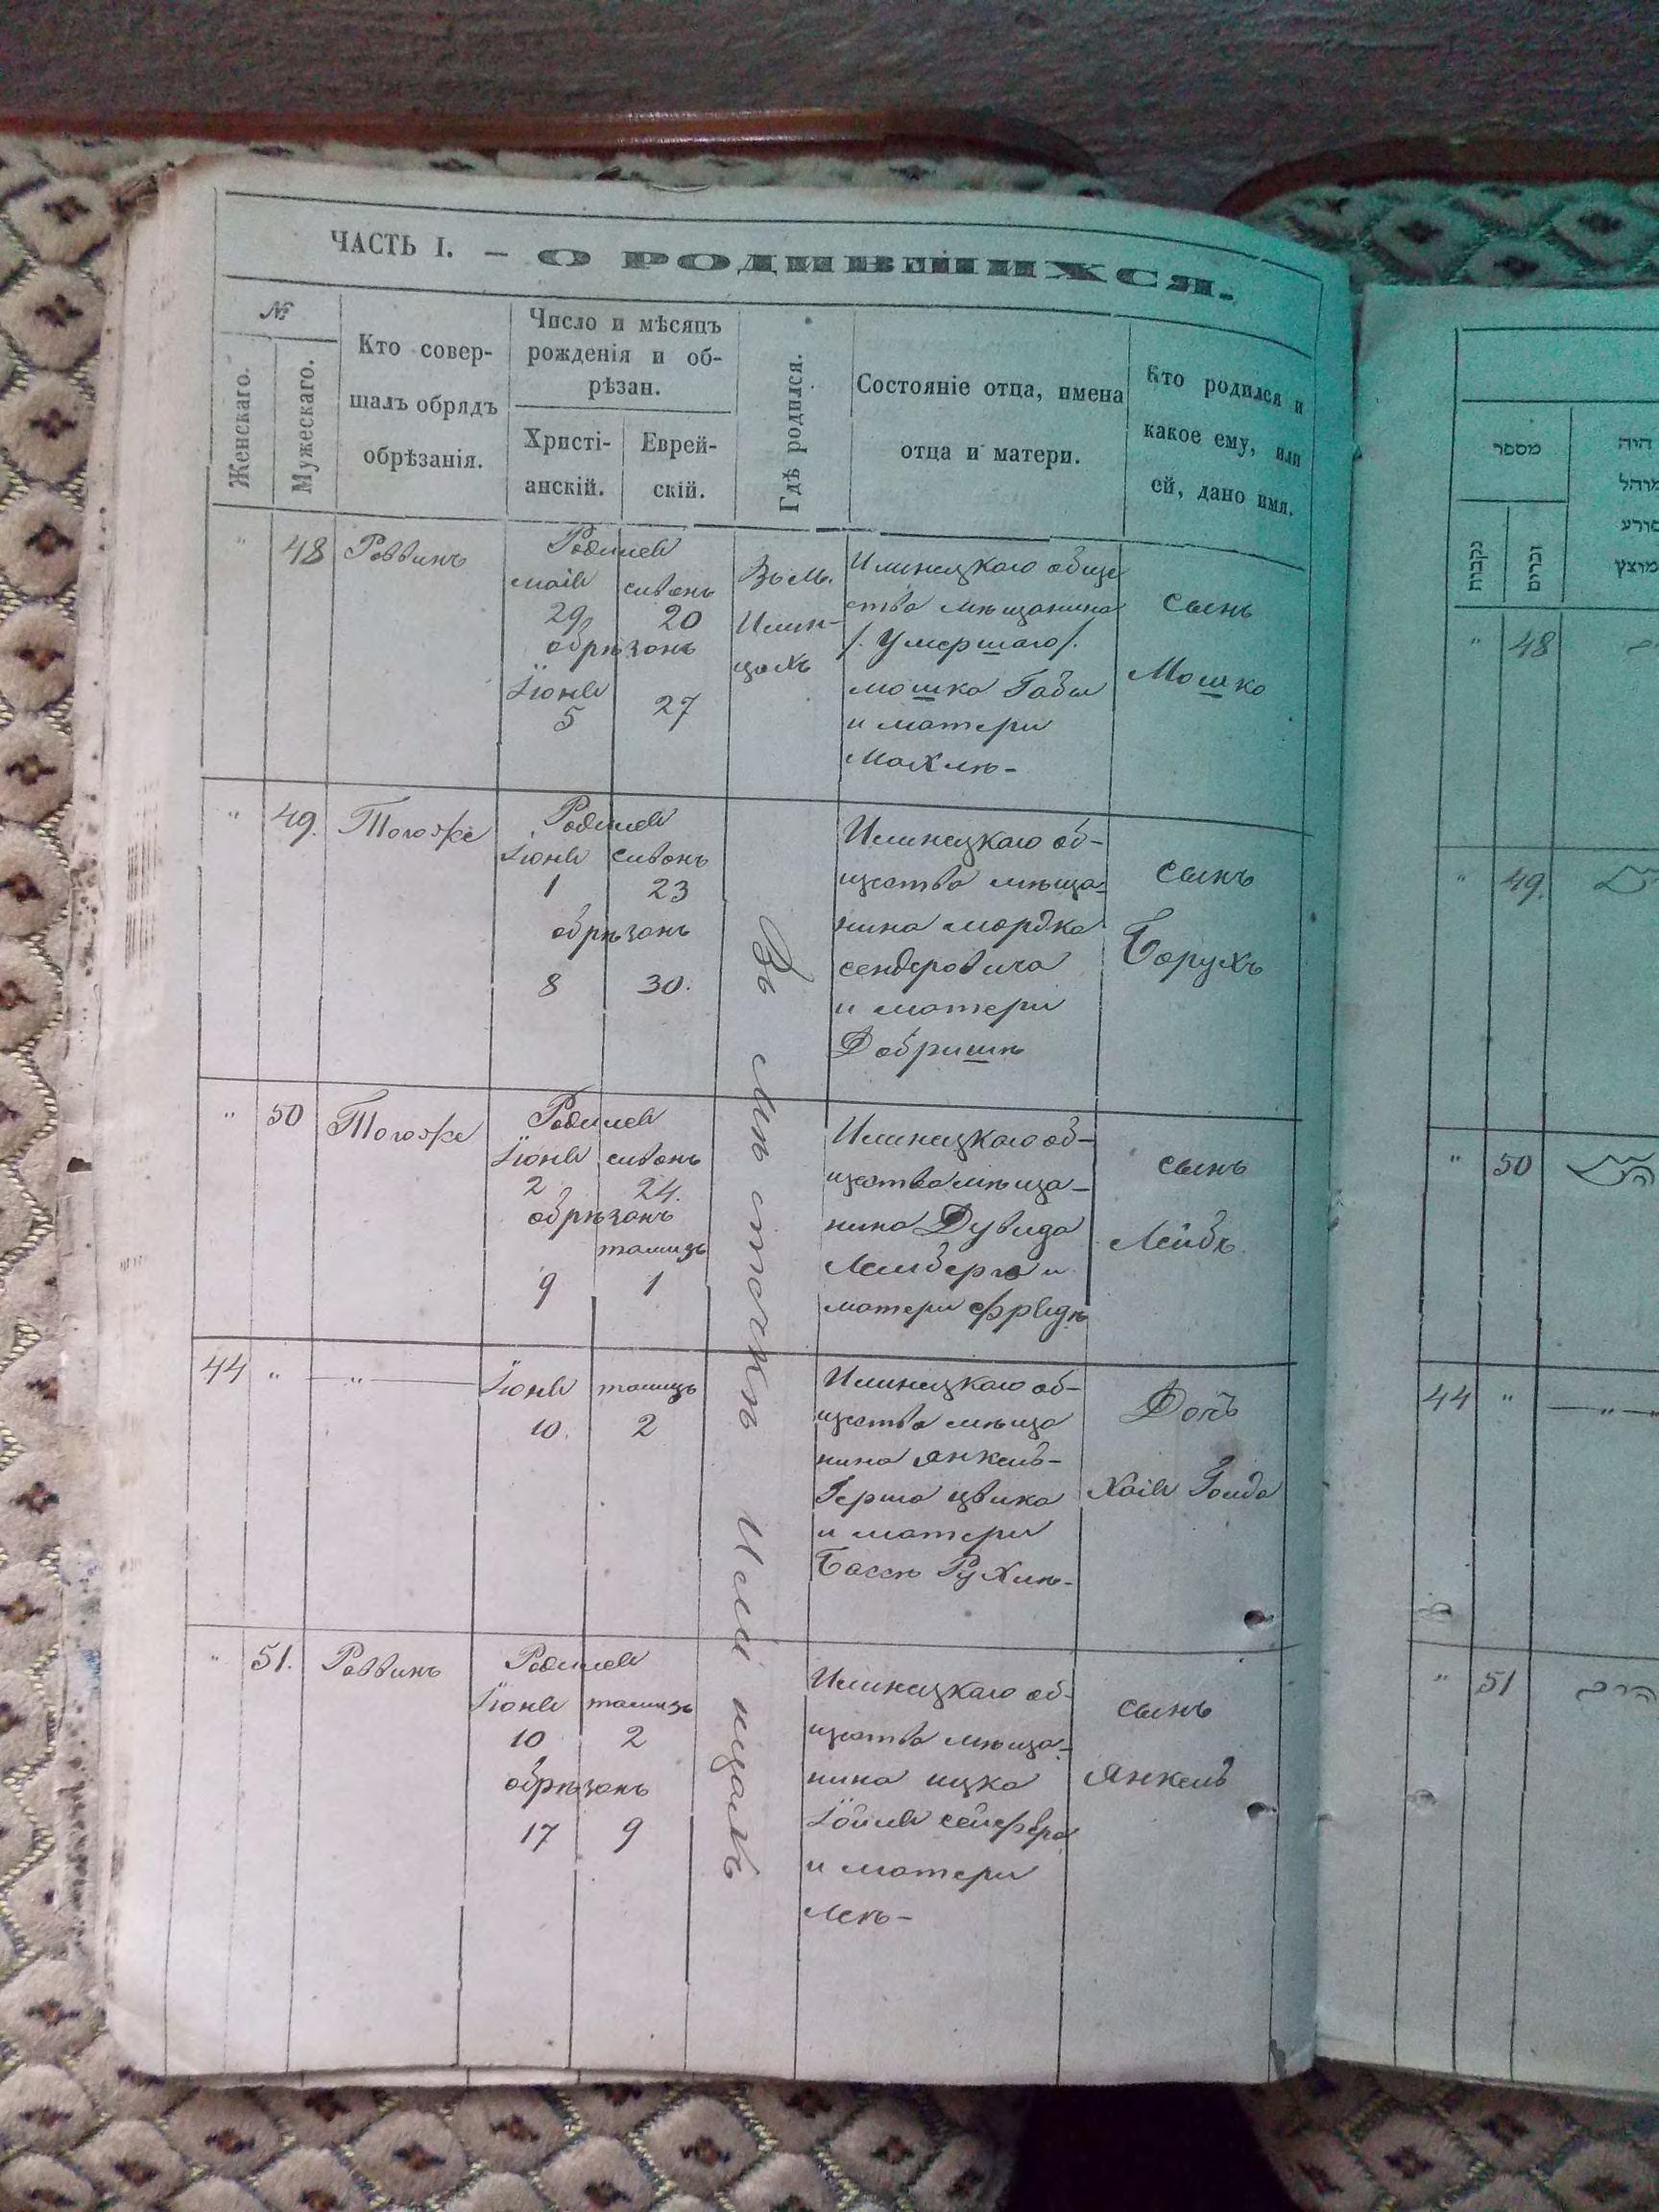 ЧАСТЬ I. — О РОДИВШИХСЯ.
№
Женскаго.
Мужескаго.
Кто совер-
шалъ обрядъ
обрѣзанія.
Число и мѣсяцъ
рожденія и об-
рѣзан.
Христі-
анскій.
Еврей-
скій.
Гдѣ родился.
Состояніе отца, имена
отца и матери.
Кто родился и
какое ему, или
ей, дано имя.
" 48 Раввинъ
Родился
маія сивонъ
29 20
обрѣзанъ
Іюня
5 27
Въ м.
Илин-
цахъ
Илинецкаго обще
ства мѣщанина
/. Умершаго /.
мошка Габы
и матери
Махлѣ-
сынъ
Мошко
" 49. Тогоже
Родился
Іюня сивонъ
1 23
обрѣзанъ
8 30.
Въ мѣстечкѣ Илінцахъ
Илинецкаго об-
щества мѣща-
нина мордка
сендеровича
и матери
Добришѣ
сынъ
Борухъ
" 50 Тогоже
Родился
Іюня сивонъ
2 24.
обрѣзанъ
тамизъ
9 1
Илинецкаго об-
щества мѣща-
нина Дувида
Лемберга и
матери Фрейдѣ
сынъ
Лейбъ.
44 " — " —
Іюня тамизъ
10. 2
Илинецкаго об-
щества мѣща
нина Янкель-
Герша цвика
и матери
Бассѣ Рухлѣ-
Дочь
Хаія Голда
" 51. Раввинъ
Родился
Іюня тамизъ
10 2
обрѣзанъ
17 9
Илинецкаго об-
щества мѣща-
нина ицка
Іойля
и матери
Леѣ-
сынъ
Янкель
מספר
נקבות
זכרים
היה
" 48
" 49.
" 50
44 " — " —
" 51